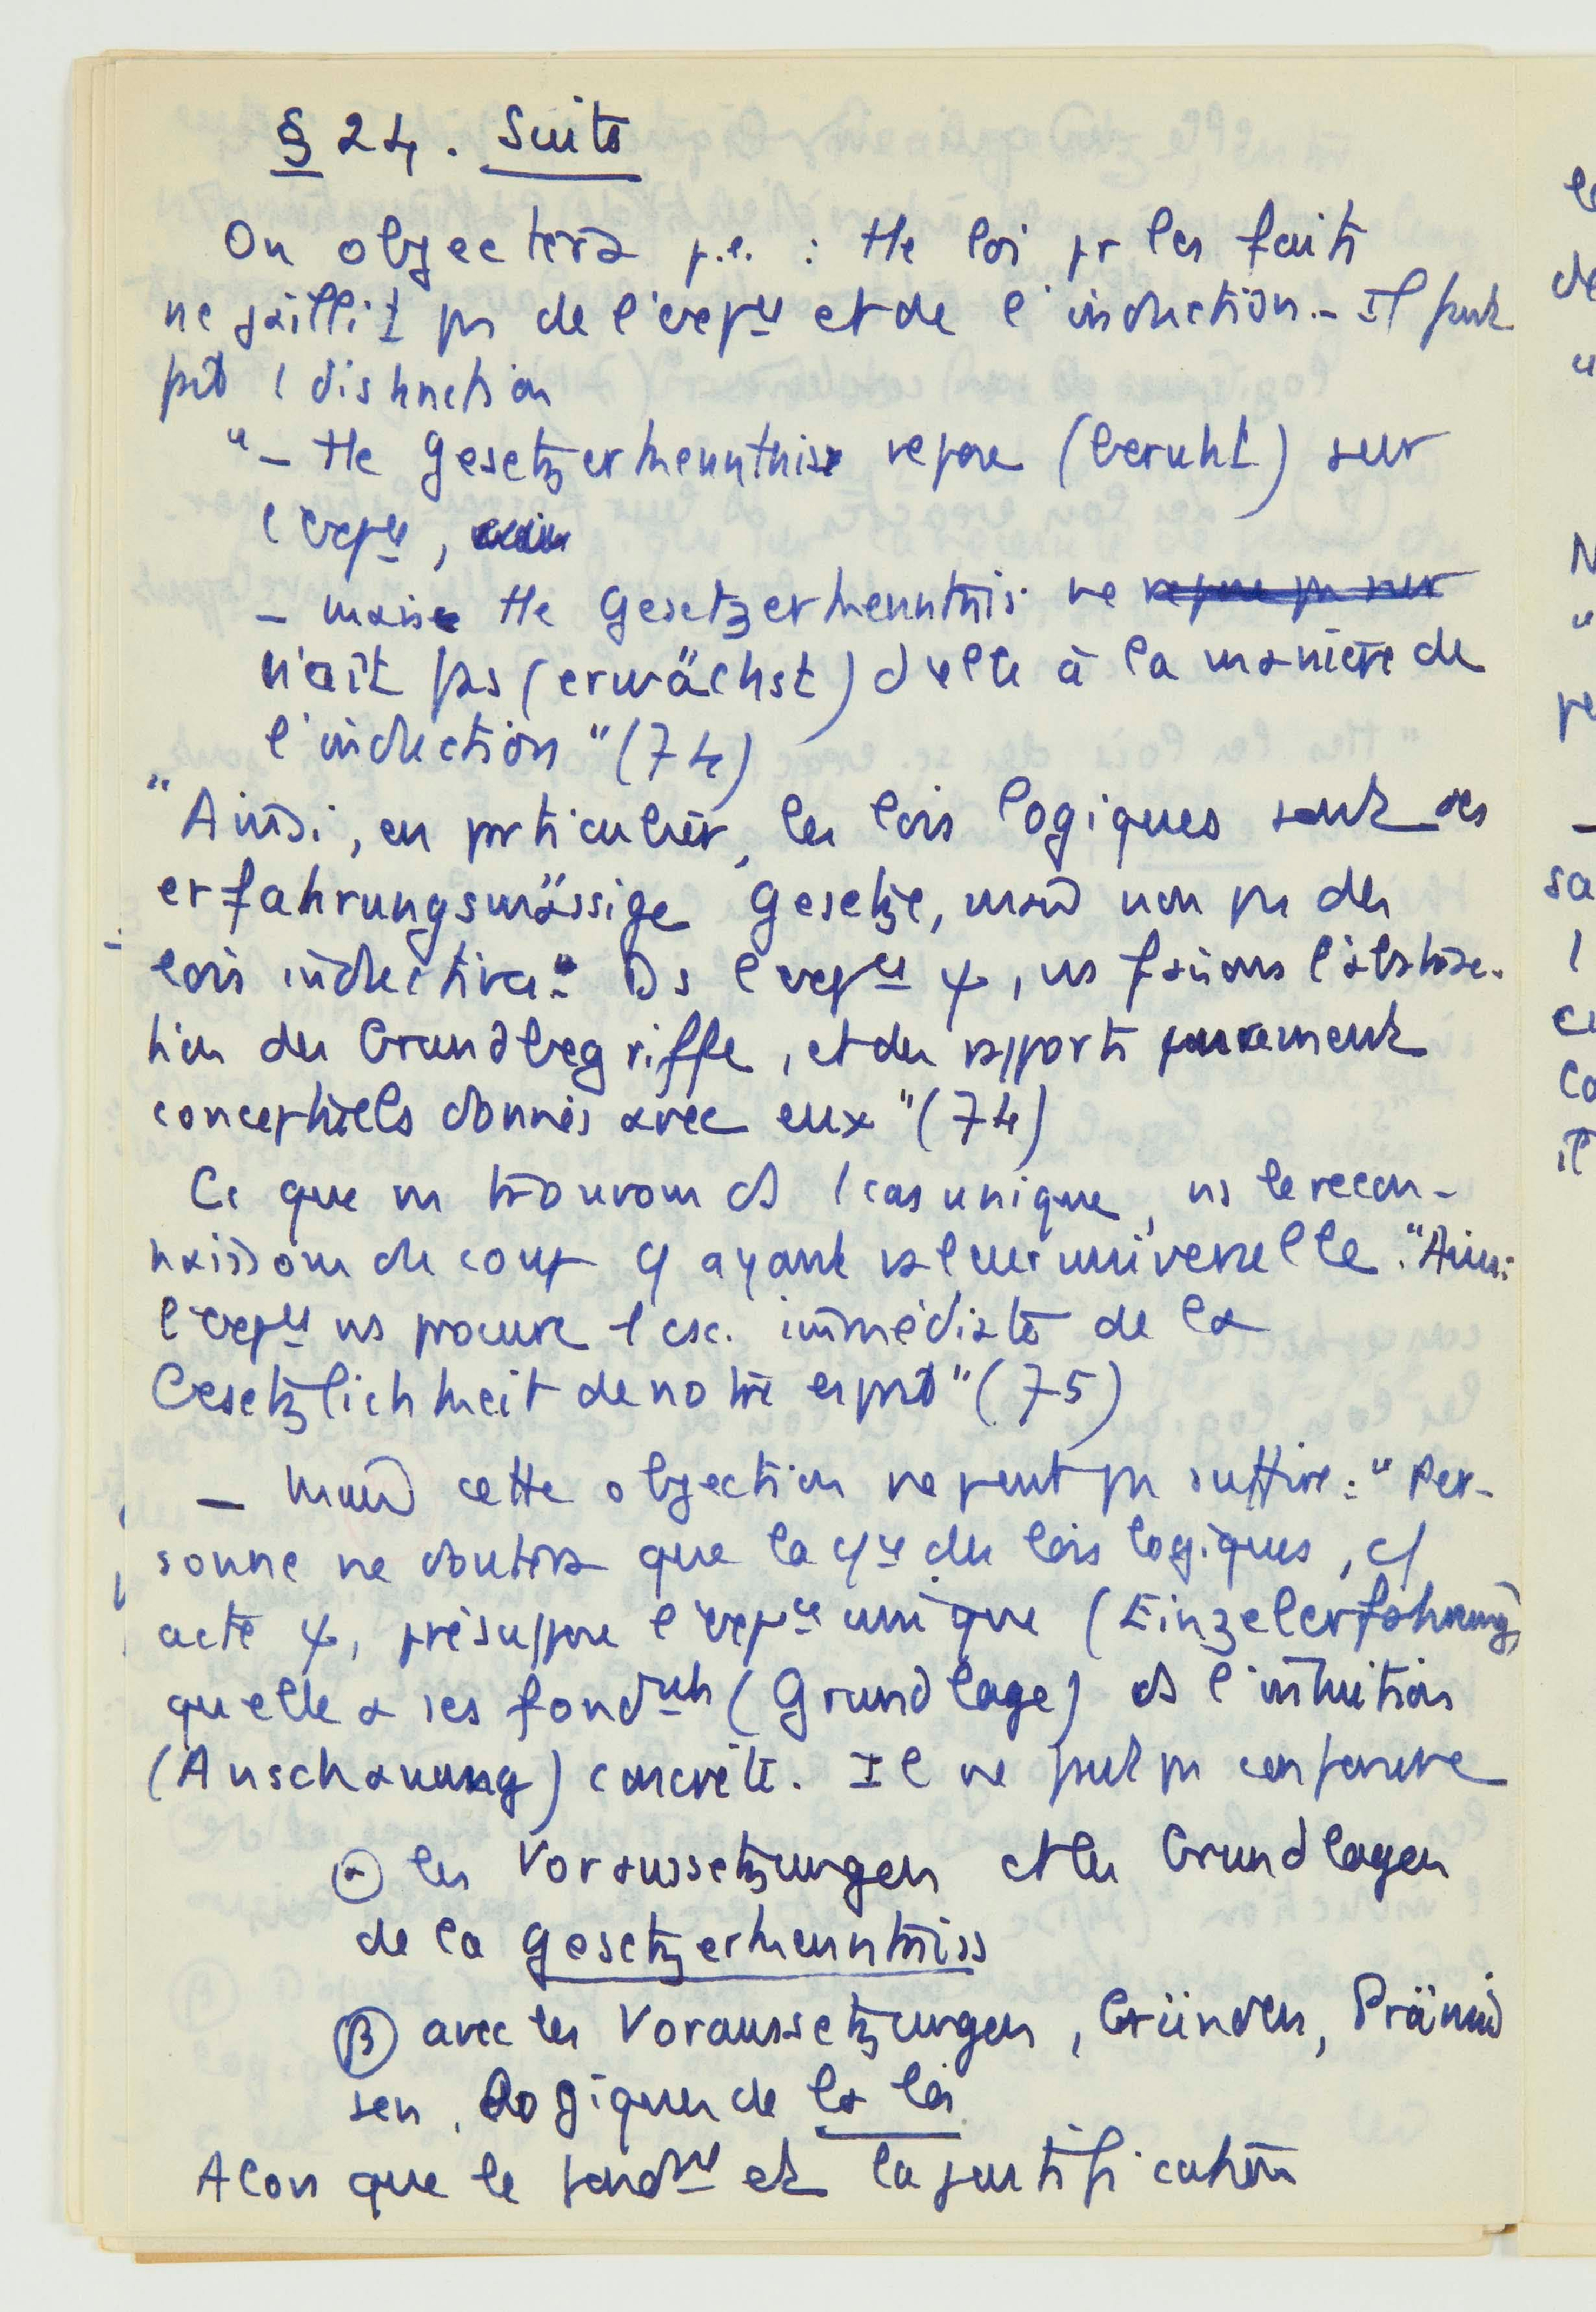 § 24. Suite
On objectera p.e. : tte loi pr les faits
ne jaillit ps de l'expce et de l'induction. – Il faut
1 distinction
"– tte Gesetzerkenntniss repose (beruht) sur
l'expce,
– mais tte Gesetzerkenntnis ne repose ps sur
naît pas (erwächst) d'elle à la manière de
l'induction" (74)
"Ainsi, en particulier, les lois logiques sont des
erfahrungsmässige Gesetze, mais non ps des
lois inductives". Ds l'expce ψ, ns faisons l'abstrac-
tion des Grundbegriffe, et des rapports purement
conceptuels donnés avec eux" (74)
Ce que ns trouvons ds 1 cas unique, ns le recon-
naissons du coup ayant valeur universelle. "Ainsi
l'expce ns procure 1 csc. immédiate de la
Gesetzlichkeit de notre esprit" (75)
– Mais cette objection ne peut ps suffire : "Per-
sonne ne doutera que la des lois logiques,
acte ψ, présuppose l'expce unique (Einzelerfahrung)
qu'elle a ses fondmts (Grundlage) ds l'intuition
(Anschauung) concrète. Il ne faut ps confondre
α les Voraussetzungen et les Grundlagen
de la Gesetzerkenntniss
β avec les Voraussetzungen, Gründen, Prämis
sen, logiques de la loi
Alors que le fondmt et la justification